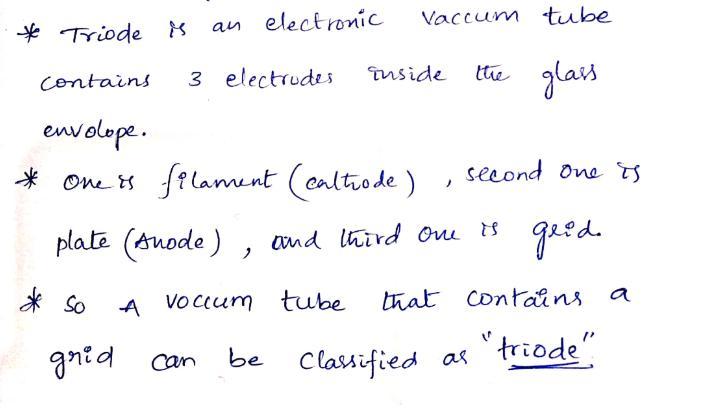 * Triode is an electronic vaccum tube
contains 3 electrudes inside the glass
envolope.
* One is filament (caltrode), second one is
plate (Anode), and third one is greed.
* so A voccum tube that contains a
grid can be classified as "triode"